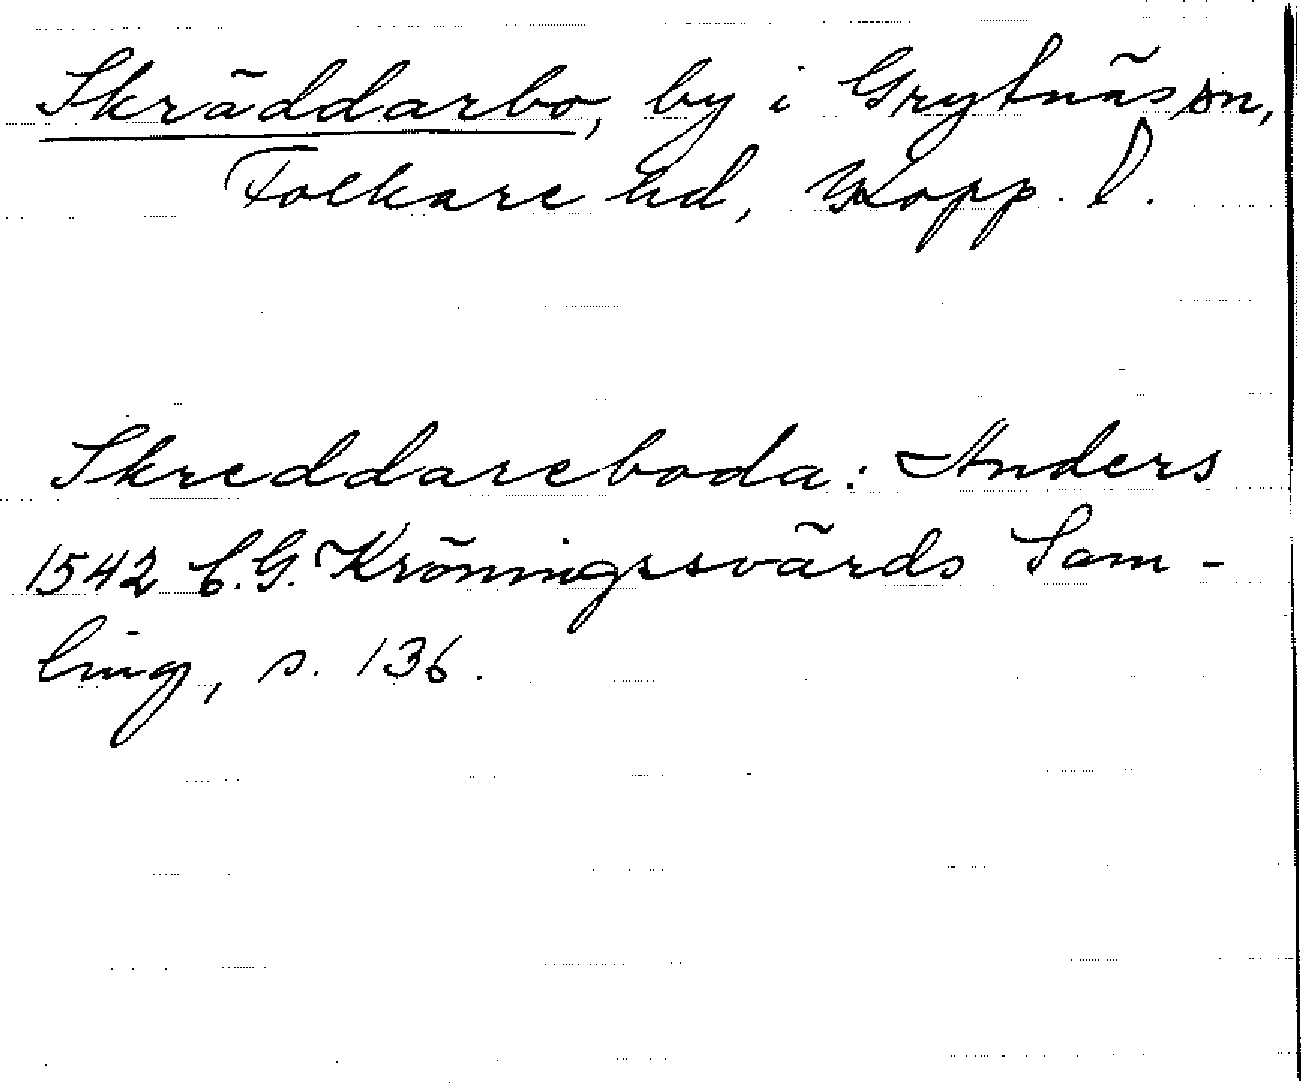 Skräddarbo, by i Grytnäs sn,
Folkare hd, Kopp. l.
Skreddareboda: Anders
1542 C.G. Kröningssvärds Sam-
ling, s. 136.